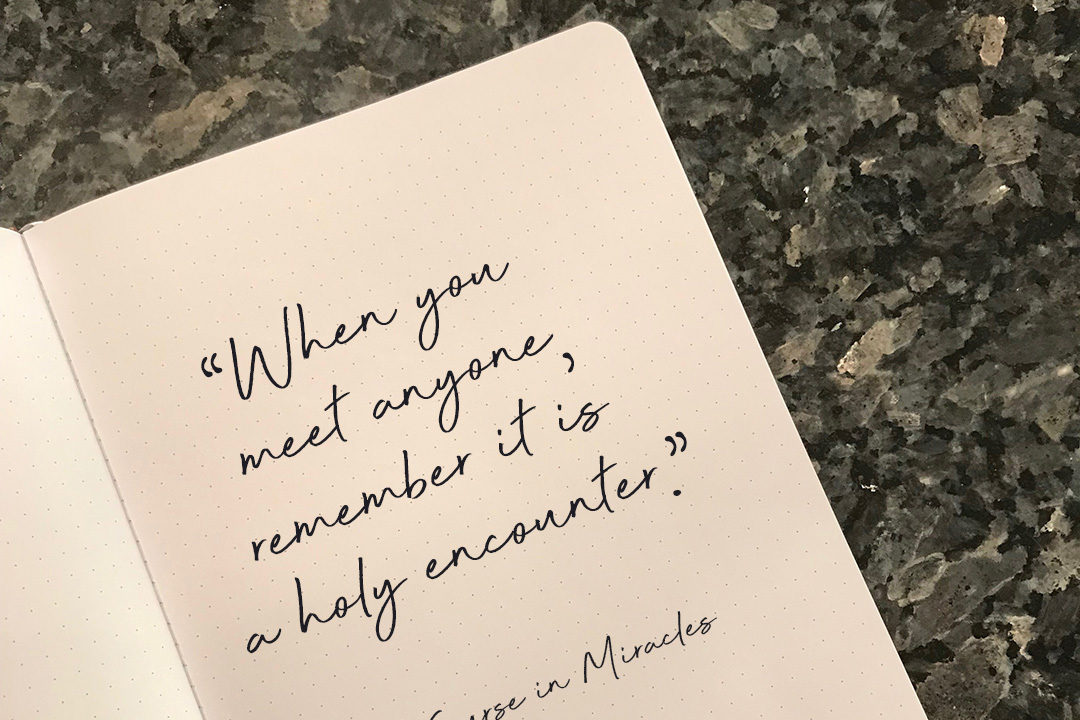 “When you
meet anyone,
remember it is
a holy encounter.”
Course in Miracles